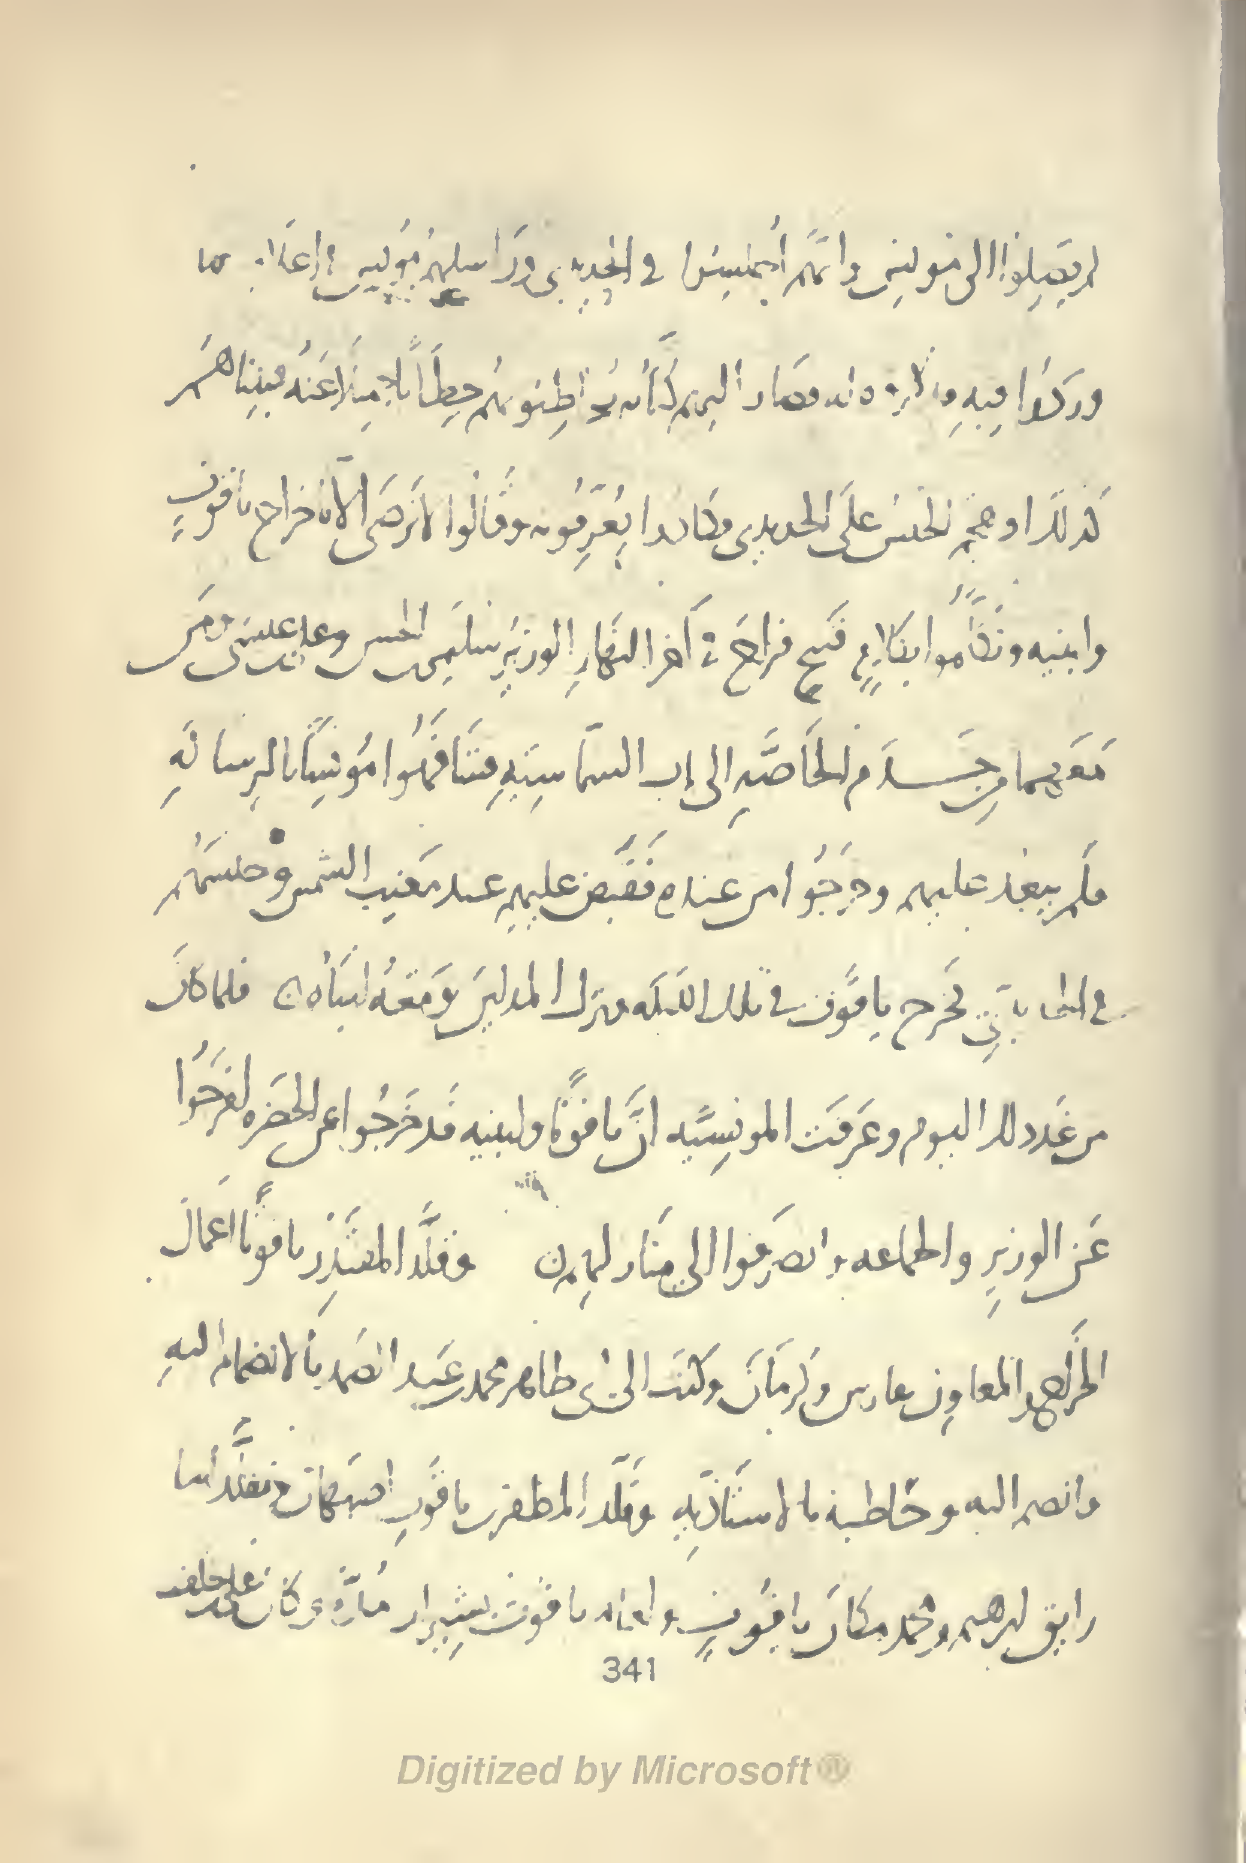 لم يصلوا الى مونس وانهم احتبسوا في الحديدى وراسلهم مونس
وركبوا فيه فصار اليهم كتاب بما اطنوبهم خطابا جميلا عنه فبينا هم
كذلك اذ هجم الجيش على الحديدى وكادوا يغرقونه وقالوا لا نرضى الا باخراج ياقوت
وابنيه وتكلموا بكلام قبيح فراح في آخر النهار الوزير سليمن بن الحسن وعلى بن عيسى ومن
معهما من خدم الخاصة الى باب الشماسية فشافهوا مونسا بالرسالة
فلم يبعد عليهم وخرجوا من عنده فقبض عليهم عند مغيب الشمس وحبسهم
في فخرج ياقوت في تلك الليلة فنزل المداين ومعه ابناه ه فلما كان
من غد ذلك اليوم وعرفت المونسية ان ياقوتا وابنيه قد خرجوا عن الحضرة افرجوا
عن الوزير والجماعة وانصرفوا الى منازلهم ه وقلد المقتدر ياقوتا اعمال
الخراج والمعاون بفارس وكرمان وكتب الى ابى طاهر محمد بن عبد الصمد بالانضمام اليه
وانضم اليه وخاطبه بالاستاذية وقلد المظفر بن ياقوت اصبهان وتقلد ابنا
رايق ابرهيم ومحمد مكان ياقوت واقام ياقوت بشيراز مدة وكان على بن خلف
341
Digitized by Microsoft®